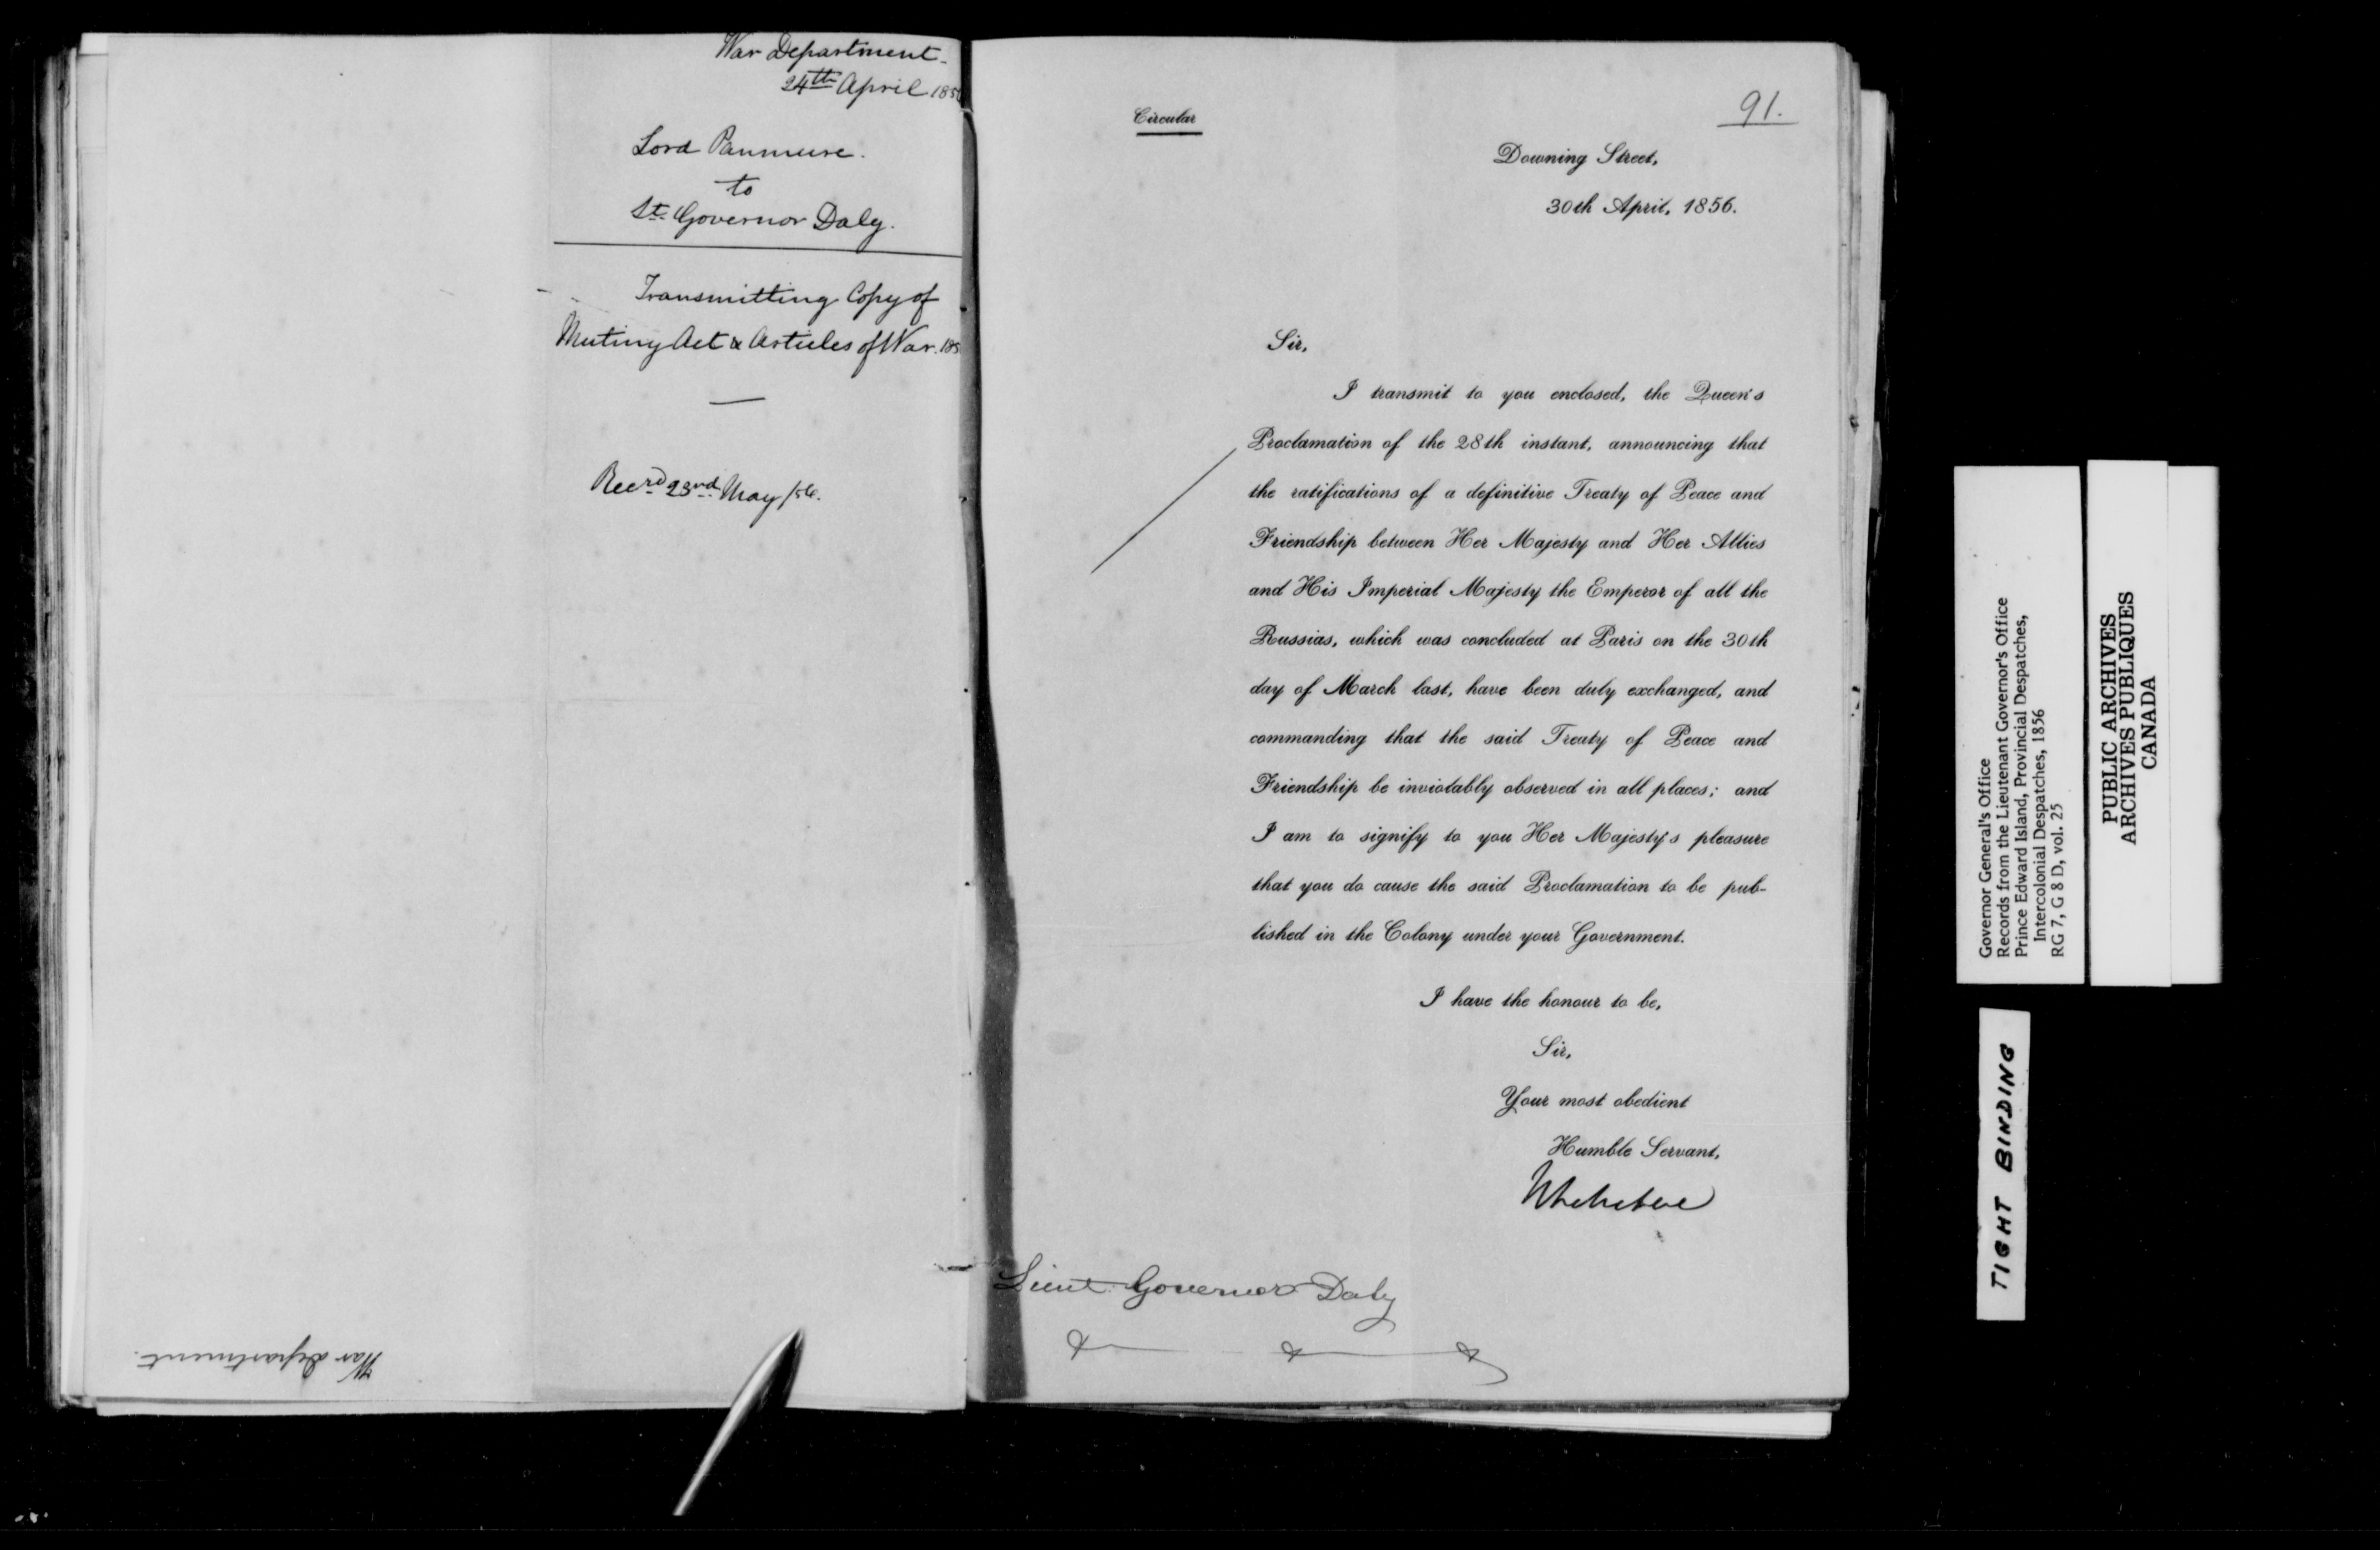 War Department.
24th April 185
Lord Panmure.
to
Lt. Governor Daly.
Transmitting Copy of
Mutiny Act & Articles of War. 185
Recrd 23rd May /56.
War department.
91.
Circular
Downing Street,
30th April, 1856.
Sir,
I transmit to you enclosed, the Queen's
Proclamation of the 28th instant, announcing that
the ratifications of a definitive Treaty of Peace and
Friendship between Her Majesty and Her Allies
and His Imperial Majesty the Emperor of all the
Russias, which was concluded at Paris on the 30th
day of March last, have been duly exchanged, and
commanding that the said Treaty of Peace and
Friendship be inviolably observed in all places; and
I am to signify to you Her Majesty's pleasure
that you do cause the said Proclamation to be pub-
lished in the Colony under your Government.
I have the honour to be,
Sir,
Your most obedient
Humble Servant,
Lieut Governor Daly
Governor General's Office
Records from the Lieutenant Governor's Office
Prince Edward Island, Provincial Despatches,
Intercolonial Despatches, 1856
RG 7, G 8 D, vol. 25
PUBLIC ARCHIVES
ARCHIVES PUBLIQUES
CANADA
TIGHT BINDING